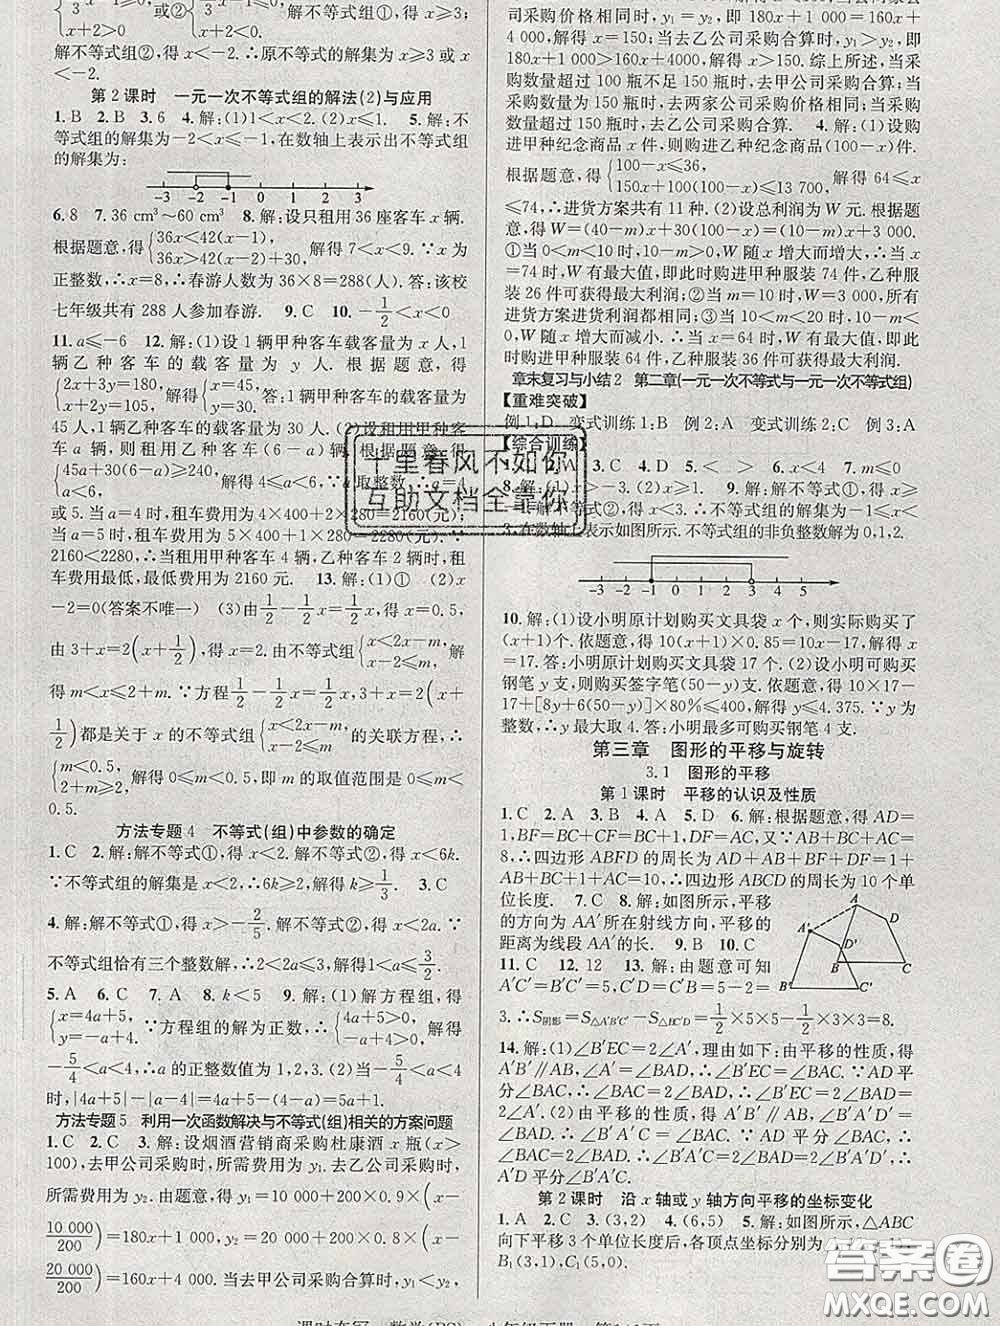 x+2>0
解不等式①,得 x≥3;
解不等式组②,得 x<-2.∴原不等式的解集为 x≥3 或
x<-2.
第 2 课时 一元一次不等式组的解法(2)与应用
1.B 2.B 3.6 4.解:(1)1<x<2.(2)x≤1. 5.解:不
等式组的解集为-2<x≤-1,在数轴上表示出不等式组
的解集为:
-3 -2 -1 0 1 2 3
6.8 7.36 cm³~60 cm³ 8.解:设只租用 36 座客车 x 辆.
根据题意,得{36x<42(x-1), 36x>42(x-2)+30, 解得 7<x<9.∵x 为
正整数,∴x=8.∴春游人数为 36×8=288(人).答:该校
七年级共有 288 人参加春游. 9.C 10.-1/2<x<0
11.a≤-6 12.解:(1)设 1 辆甲种客车载客量为 x 人,1
辆乙种客车的载客量为 y 人.根据题意,得
解得{x=45, y=30. 答:1 辆甲种客车的载客量为
45 人,1 辆乙种客车的载客量为 30 人.(2)设租用甲种客
车 a 辆,则租用乙种客车(6-a)辆.根据题意,得
{45a+30(6-a)≥240, a<6. 解得
a=5.当 a=4 时,租车费用为
当 a=5 时,租车费用为 5×400+1×280=2280(元).∵
2160<2280,∴当租用甲种客车 4 辆,乙种客车 2 辆时,租
车费用最低,最低费用为 2160 元. 13.(1)① (2)x
-2=0(答案不唯一) (3)由1/2-1/2x=1/2x,得 x=0.5,
由 3+x=2(x+1/2),得 x=2.由不等式组{x<2x-m, x-2≤m, 解
得 m<x≤2+m.∵方程1/2-1/2x=1/2x,3+x=2(x+
1/2)都是关于 x 的不等式组{x<2x-m, x-2≤m 的关联方程,∴
{m<0.5, 2≤m+2. 解得 0≤m<0.5,即 m 的取值范围是 0≤m<
0.5.
方法专题 4 不等式(组)中参数的确定
1.C 2.解:解不等式①,得 x<2.解不等式②,得 x<6k.
∵不等式组的解集是 x<2,∴6k≥2,解得 k≥1/3. 3.C
4.解:解不等式①,得 x>-2/5.解不等式②,得 x<2a.∵
不等式组恰有三个整数解,∴2<2a≤3,解得 1<a≤3/2.
5.A 6.C 7.A 8.k<5 9.解:(1)解方程组,得
{x=4a+5, y=-a+4. ∵方程组的解为正数,∴{4a+5>0, -a+4>0, 解得-
5/4<a<4.∴a 的整数值为-1,0,1,2,3.(2)当-5/4<a<4
时,|4a+5|-|a-4|=4a+5-(4-a)=5a+1.
方法专题 5 利用一次函数解决与不等式(组)相关的方案问题
1.C 2.C 3.解:设烟酒营销商采购杜康酒 x 瓶(x>
100),去甲公司采购时,所需费用为 y₁.去乙公司采购时,
所需费用为 y₂.由题意,得 y₁=10 000+200×0.9×(x-
10 000/200)=180x+1 000,y₂=20 000+200×0.8×(x-
20 000/200)=160x+4 000.当去甲公司采购合算时,y₁<y₂,
购价格相同时,y₁=y₂,即 180x+1 000=160x+
4 000,解得 x=150.当去乙公司采购合算时,y₁>y₂,即
180x+1 000>160x+4 000,解得 x>150.综上所述,当采
购数量超过 100 瓶不足 150 瓶时,去甲公司采购合算;当
采购数量为 150 瓶时,去两家公司采购价格相同;当采购
数量超过 150 瓶时,去乙公司采购合算. 4.解:(1)设购
进甲种纪念商品 x 件,则购进乙种纪念商品(100-x)件.
根据题意,得{100-x≤36, 150x+100(100-x)≤13 700. 解得 64≤x
≤74,∴进货方案共有 11 种.(2)设总利润为 W 元.根据
题意,得 W=(40-m)x+30(100-x)=(10-m)x+3 000.
①当 0<m<10 时,10-m>0,W 随 x 增大而增大,∴当
x=74 时,W 有最大值,即此时购进甲种服装 74 件,乙种服
装 26 件可获得最大利润;②当 m=10 时,W=3 000,所有
进货方案进货利润都相同;③当 10<m<20 时,10-m<
0,W 随 x 增大而减小.∴当 x=64 时,W 有最大值,即此
时购进甲种服装 64 件,乙种服装 36 件可获得最大利润.
章末复习与小结 2 第二章(一元一次不等式与一元一次不等式组)
【重难突破】
例 1:D 变式训练 1:B 例 2:A 变式训练 2:C 例 3:A
【综合训练】
3.C 4.D 5.< > < 6.x>4 7.x>2
8.解:(1)x>3.(2)x≥1.
3,在数轴上表示如图所示.不等式组的非负整数解为 0,1,2.
-3 -2 -1 0 1 2 3 4 5
10.解:(1)设小明原计划购买文具袋 x 个,则实际购买了
(x+1)个.依题意,得 10(x+1)×0.85=10x-17.解得 x
=17.答:小明原计划购买文具袋 17 个.(2)设小明可购买
钢笔 y 支,则购买签字笔(50-y)支.依题意,得 10×17-
17+[8y+6(50-y)]×80%≤400,解得 y≤4.375.∵y 为
整数,∴y 最大取 4.答:小明最多可购买钢笔 4 支.
第三章 图形的平移与旋转
3.1 图形的平移
第 1 课时 平移的认识及性质
1.C 2.A 3.A 4.C 5.D 6.解:根据题意,得 AD=
1,BF=BC+CF=BC+1,DF=AC.又∵AB+BC+AC=
8,∴四边形 ABFD 的周长为 AD+AB+BF+DF=1+
AB+BC+1+AC=10.∴四边形 ABCD 的周长为 10 个单
位长度. 7.C 8.解:如图所示,平移
的方向为 AA′所在射线方向,平移的
距离为线段 AA′的长. 9.B 10.C
A A′ D D′ B C B′ C′
11.C 12.12 13.解:由题意可知
A′C′=B′C′=5,BC′=5-2=
3.∴S阴影=S△A′B′C′-S△BC′D=1/2×5×5-1/2×3×3=8.
14.解:(1)∠B′EC=2∠A′,理由如下:由平移的性质,得
A′B′∥AB,∠A′=∠BAD.∴∠B′EC=∠BAC.∵AD 平
分∠BAC,∴∠BAC=2∠BAD,∴∠B′EC=2∠BAD=
2∠A′.(2)由平移的性质,得∠B′A′C′=∠BAC,A′B′∥
AB.∴∠B′A′D′=∠BAD.∵AD 平分∠BAC,∴
∠BAD=1/2∠BAC.∴∠B′A′D′=1/2∠BAC=1/2∠B′A′C′.
∴A′D′平分∠B′A′C′.
第 2 课时 沿 x 轴或 y 轴方向平移的坐标变化
1.A 2.C 3.(3,2) 4.(6,5) 5.解:如图所示,△ABC
向下平移 3 个单位长度后,各顶点坐标分别为
B₁(3,1),C₁(5,0).
十里春风不如你
互助文档全靠你
答案圈